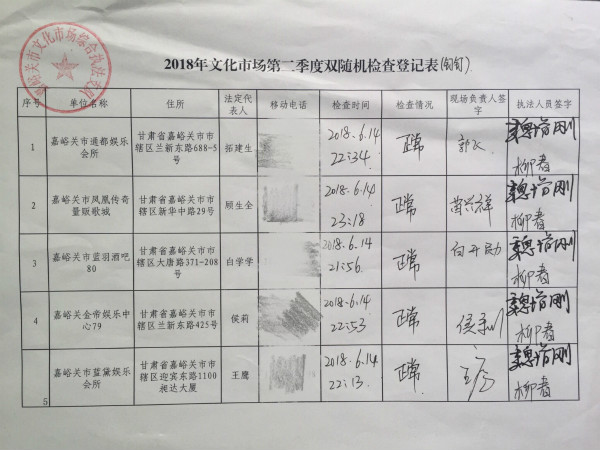 嘉峪关市文化市场综合执法支队
2018年文化市场第二季度双随机检查登记表
序号 单位名称 住所 法定代表人 移动电话 检查时间 检查情况 现场负责人签字 执法人员签字
1 嘉峪关市道都娱乐会所 甘肃省嘉峪关市市辖区兰新东路688-5号 拓建生 2018.6.14 22:34 正常
2 嘉峪关市凤凰传奇量贩歌城 甘肃省嘉峪关市市辖区新华中路29号 顾生全 2018.6.14 23:18 正常
3 嘉峪关市蓝羽酒吧80 甘肃省嘉峪关市市辖区大唐路371-208号 白学学 2018.6.14 21:56 正常
4 嘉峪关金帝娱乐中心79 甘肃省嘉峪关市市辖区兰新东路425号 侯莉 2018.6.14 22:53 正常
5 嘉峪关市蓝黛娱乐会所 甘肃省嘉峪关市市辖区迎宾东路1100昶达大厦 王鹰 2018.6.14 22:13 正常